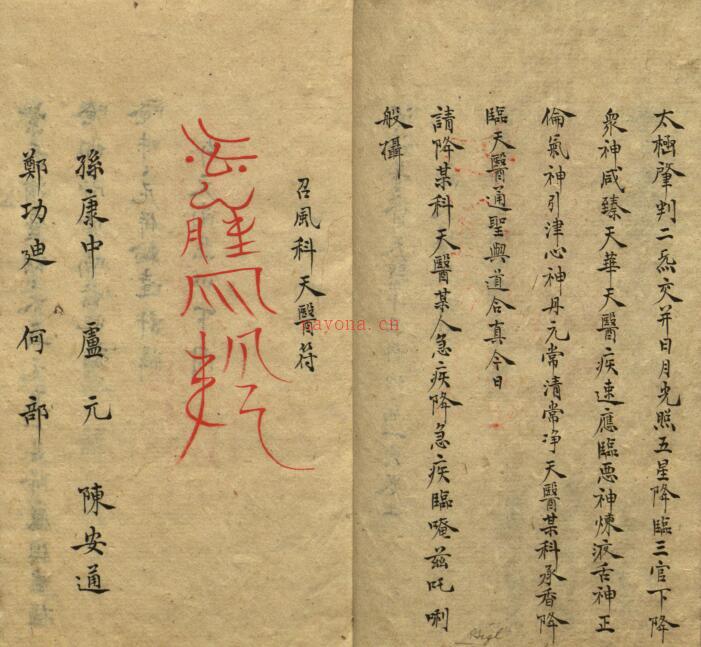 太極肇判二炁交并日月光照五星降臨三官下降
衆神咸臻天華天醫疾速應臨悪神煉液舌神正
倫氣神引津心神丹元常清常净天醫某科承香降
臨天醫通聖與道合真今日
請降某科天醫某人急疾降急疾臨唵茲吒唎
般攝
召風科天醫符
孫康中 盧元 陳安通
鄭功廸 何部
nayona.cn